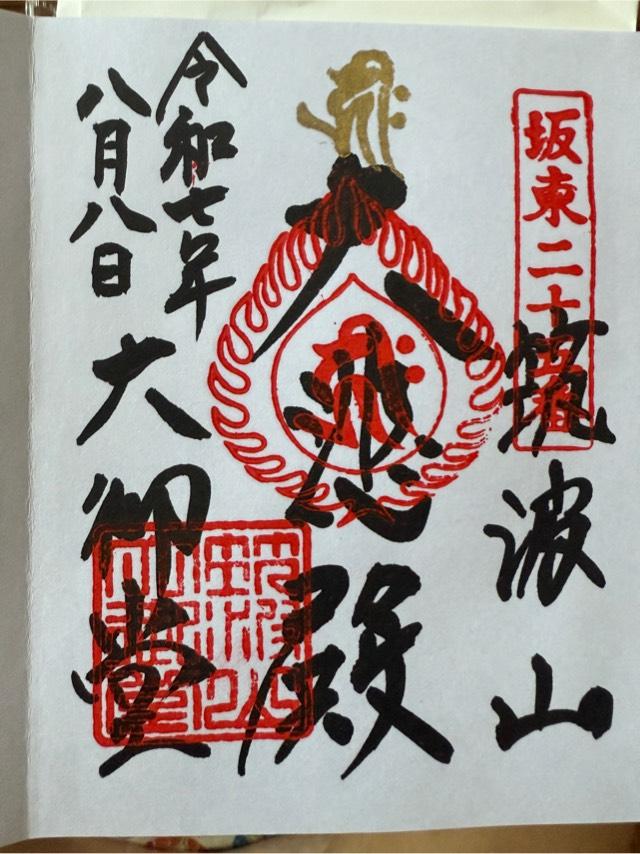 坂東二十五番
筑波山
大悲殿
令和七年
八月八日
大御堂